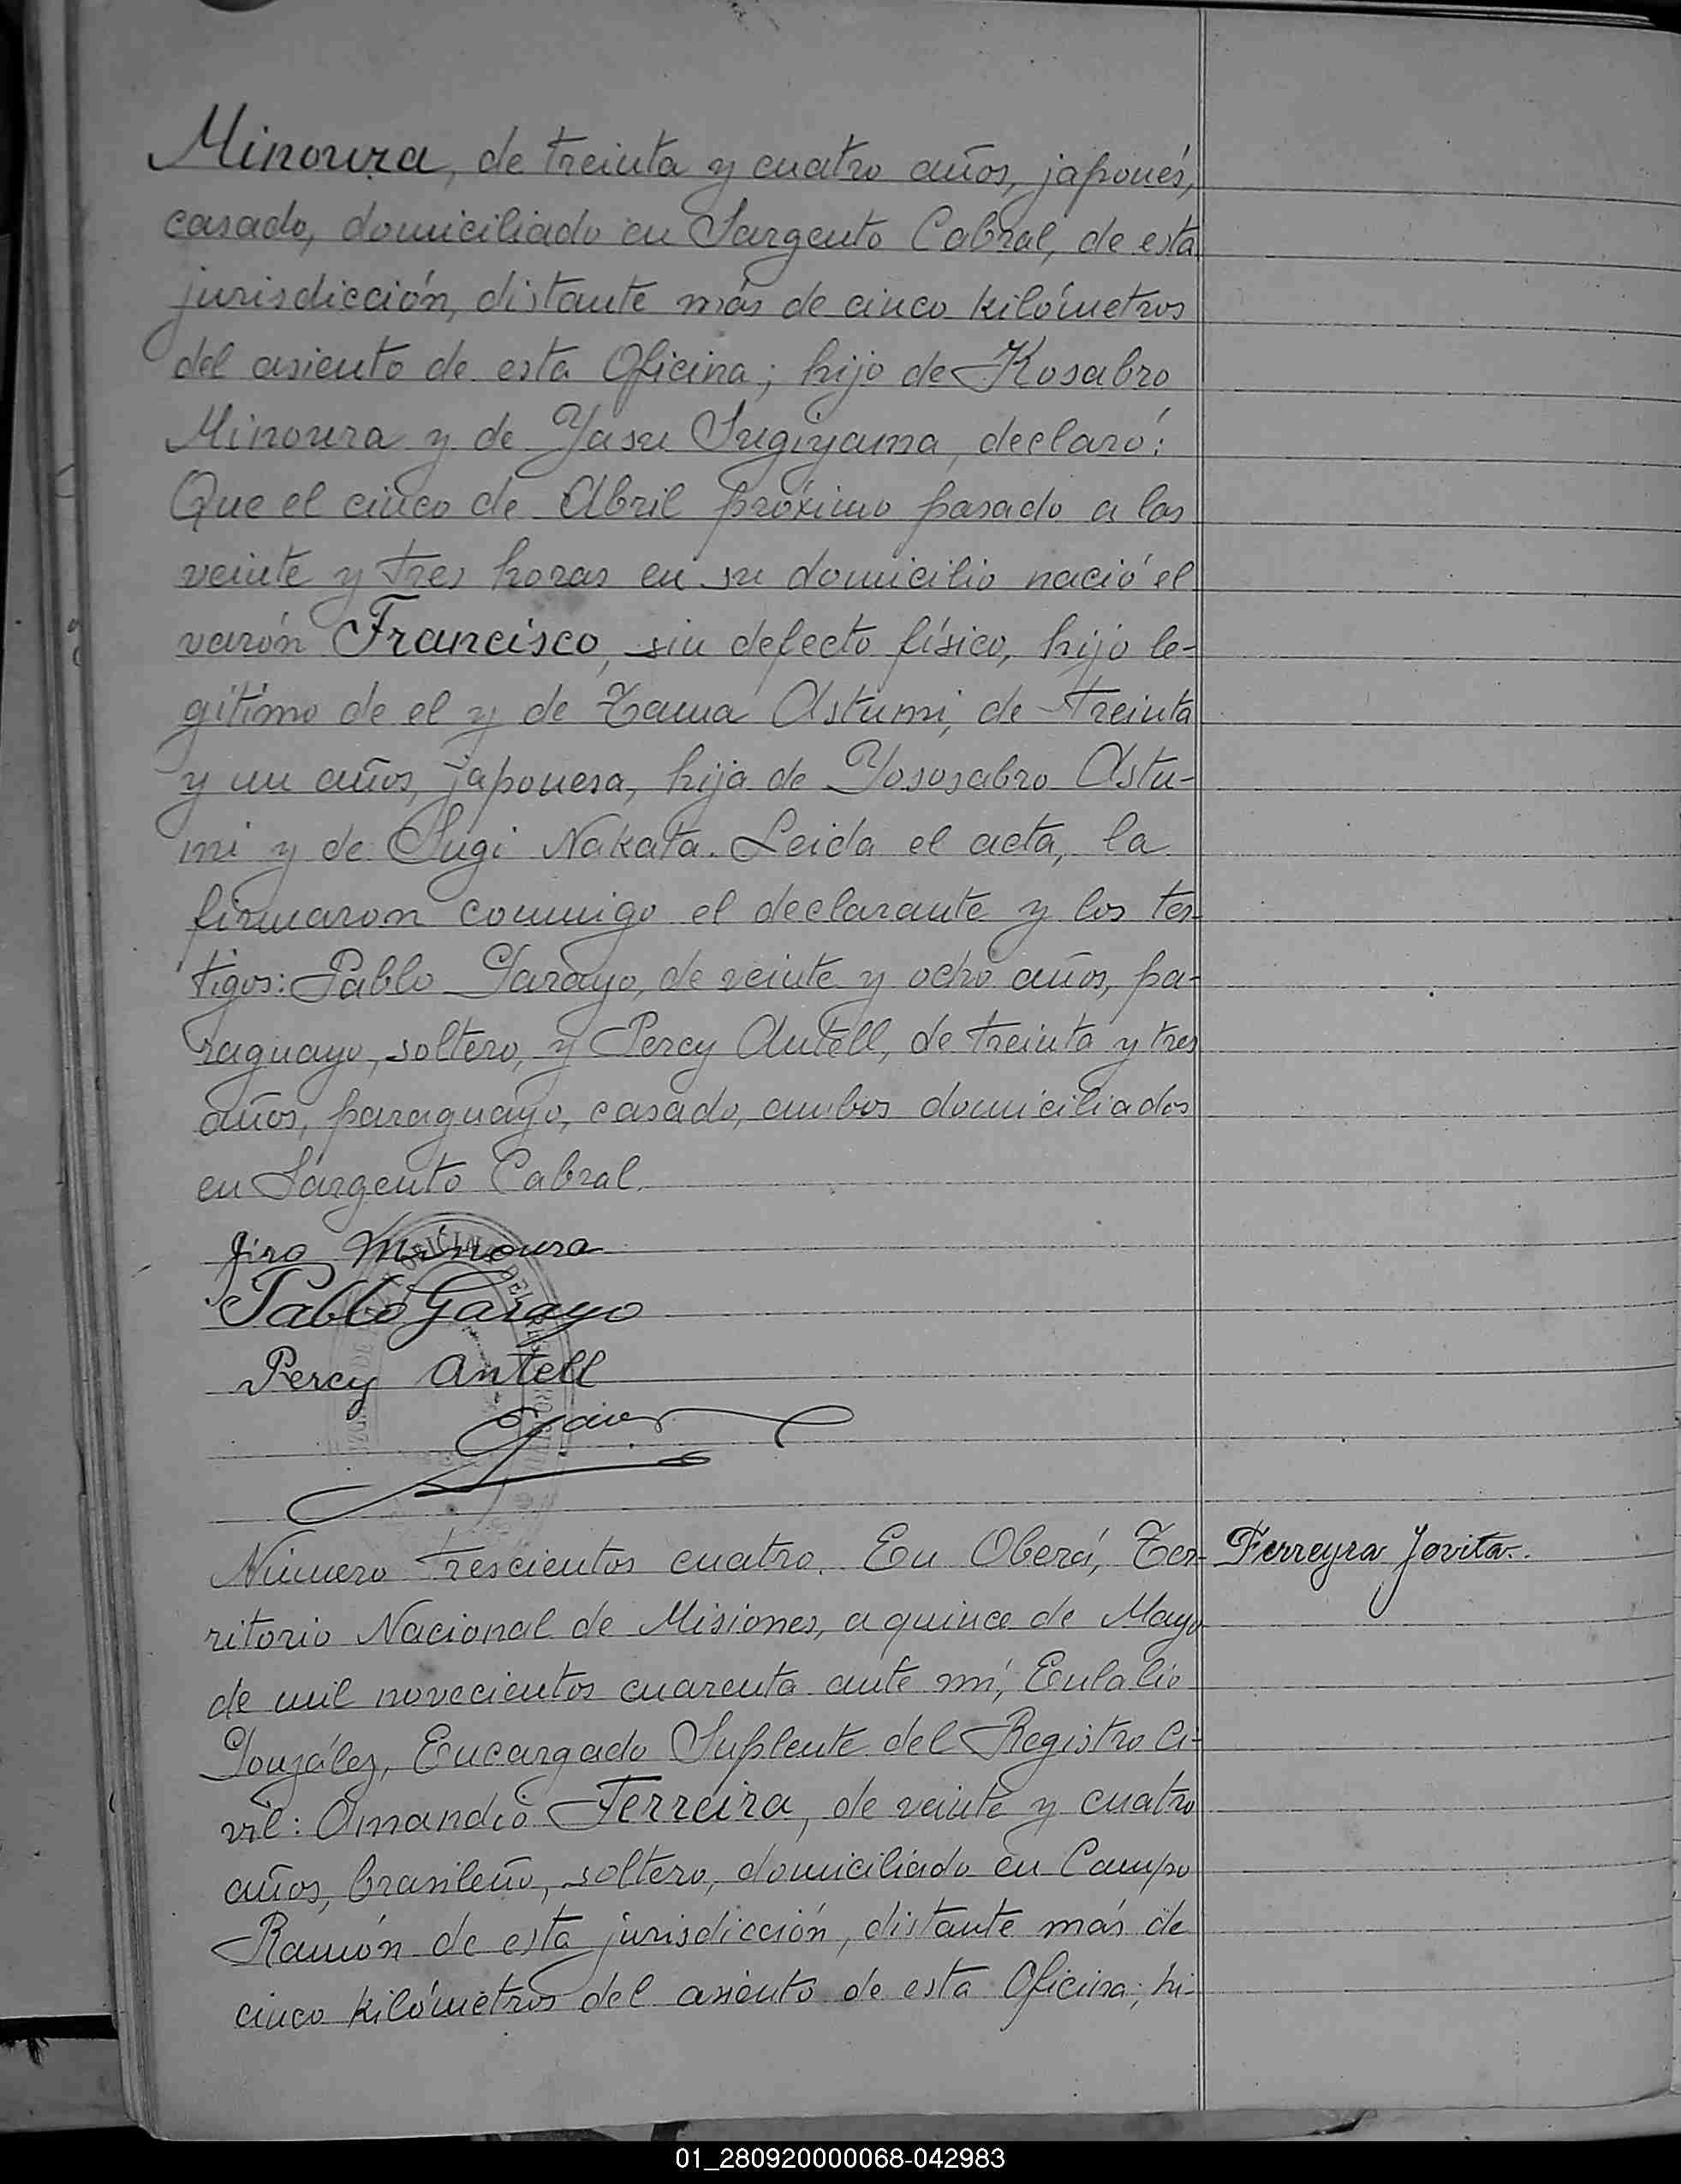 Minoura, de treinta y cuatro años, japonés,
casado, domiciliado en Sargento Cabral, de esta
jurisdicción, distante más de cinco kilómetros
del asiento de esta Oficina; hijo de Kosabro
Minoura y de Yasu Sugiyama, declaró:
Que el cinco de Abril próximo pasado a las
veinte y tres horas en su domicilio nació el
varón Francisco, sin defecto físico, hijo le-
gítimo de el y de Tama Astumi, de treinta
y un años, japonesa, hija de Yososabro Astu-
mi y de Sugi Nakata. Leida el acta, la
firmaron conmigo el declarante y los tes-
tigos: Pablo Garayo, de veinte y ocho años, pa-
raguayo, soltero, y Percy Antell, de treinta y tres
años, paraguayo, casado, ambos domiciliados
en Sargento Cabral.
Jiro Minoura
Pablo Garayo
Percy Antell
Número trescientos cuatro. En Oberá, Ter-
Ferreyra Jovita.
ritorio Nacional de Misiones, a quince de Mayo
de mil novecientos cuarenta ante mí, Eulalio
González, Encargado Suplente del Registro Ci-
vil: Amandio Ferreira, de veinte y cuatro
años, brasileño, soltero, domiciliado en Campo
Ramón de esta jurisdicción, distante más de
cinco kilómetros del asiento de esta Oficina; hi-
01_280920000068-042983